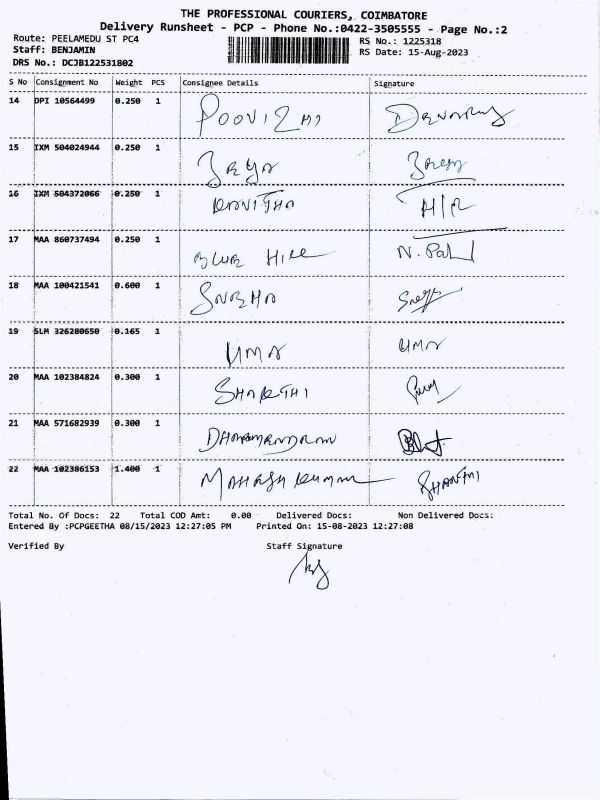 THE PROFESSIONAL COURIERS, COIMBATORE
Delivery Runsheet - PCP - Phone No.:0422-3505555 - Page No.:2
Route: PEELAMEDU ST PC4
RS No.: 1225318
Staff: BENJAMIN
RS Date: 15-Aug-2023
DRS No.: DCJB122531802
S No Consignment No Weight PCS Consignee Details Signature
14 DPI 10564499 0.250 1
15 IXM 504024944 0.250 1
16 IXM 504372066 0.250 1 H/R
17 MAA 860737494 0.250 1 HILL N. Pal
18 MAA 100421541 0.600 1 SNEHA
19 SLM 326280650 0.165 1 UMA UMA
20 MAA 102384824 0.300 1 SHAKTHI
21 MAA 571682939 0.300 1
22 MAA 102386153 1.400 1 MAHESH KUMAR SHANTHI
Total No. Of Docs: 22 Total COD Amt: 0.00 Delivered Docs: Non Delivered Docs:
Entered By :PCPGEETHA 08/15/2023 12:27:05 PM Printed On: 15-08-2023 12:27:08
Verified By Staff Signature